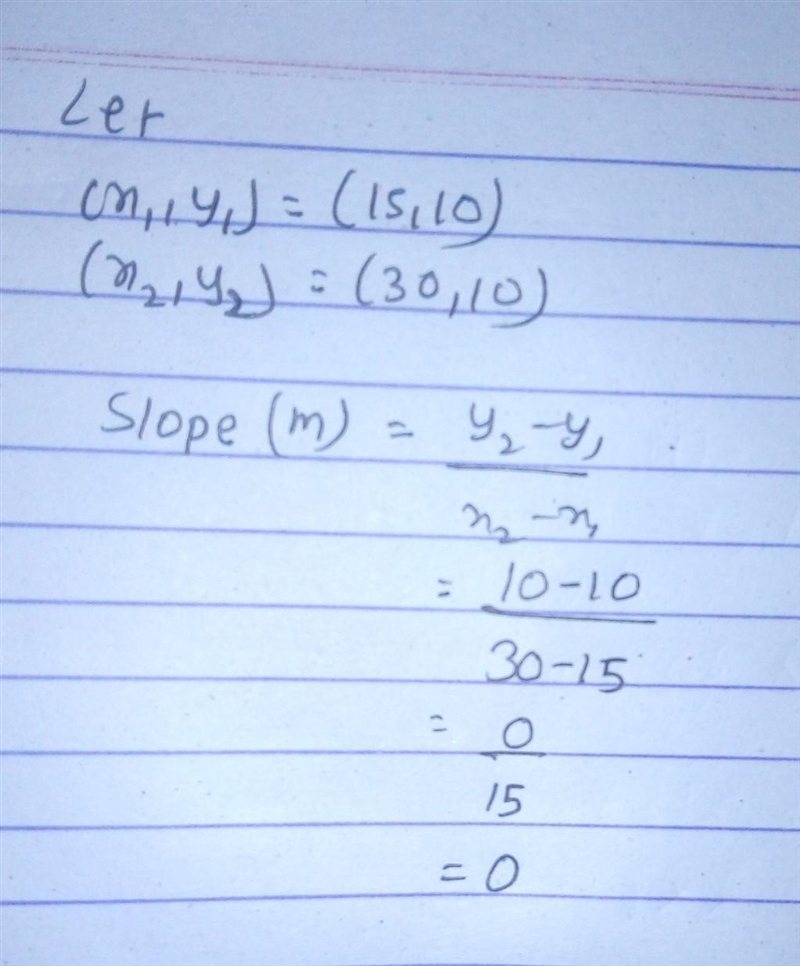 Let
(x₁, y₁) = (15, 10)
(x₂, y₂) = (30, 10)
Slope (m) = y₂ - y₁
x₂ - x₁
= 10 - 10
30 - 15
= 0
15
= 0